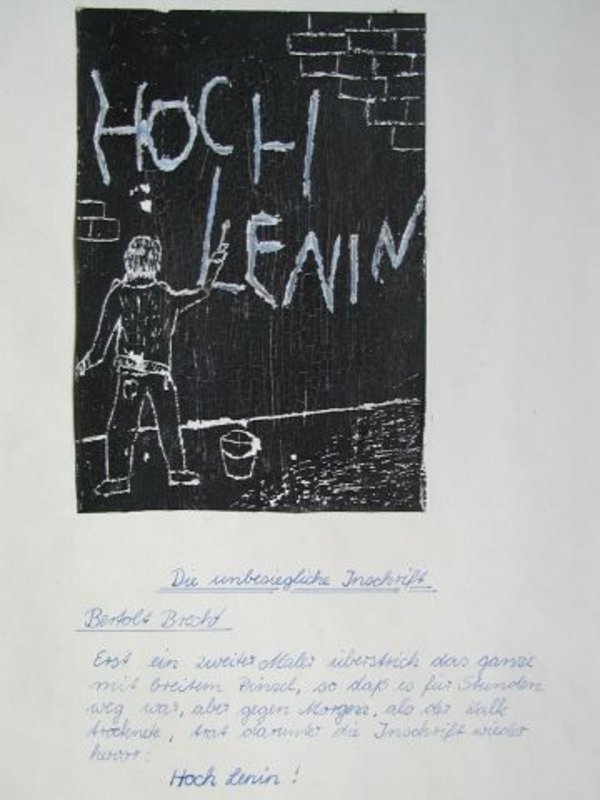 HOCH
LENIN
Die unbesiegliche Inschrift
Bertolt Brecht
Erst ein zweiter Maler überstrich das ganze
mit breitem Pinsel, so daß es für Stunden
weg war, aber gegen Morgen, als der Kalk
trocknete, trat darunter die Inschrift wieder
hervor:
Hoch Lenin !